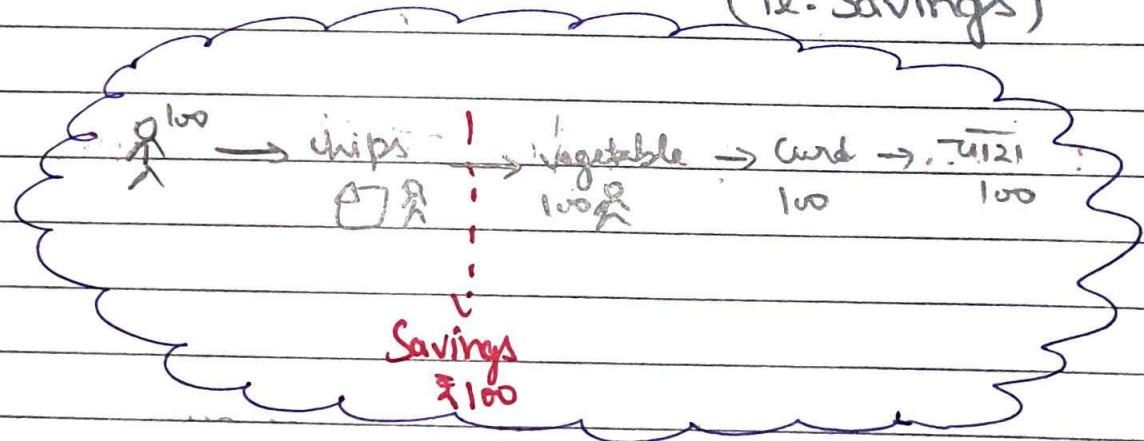 (ie. Savings)
100 → chips → Vegetable → Curd → चारा
100 100 100
Savings
₹100